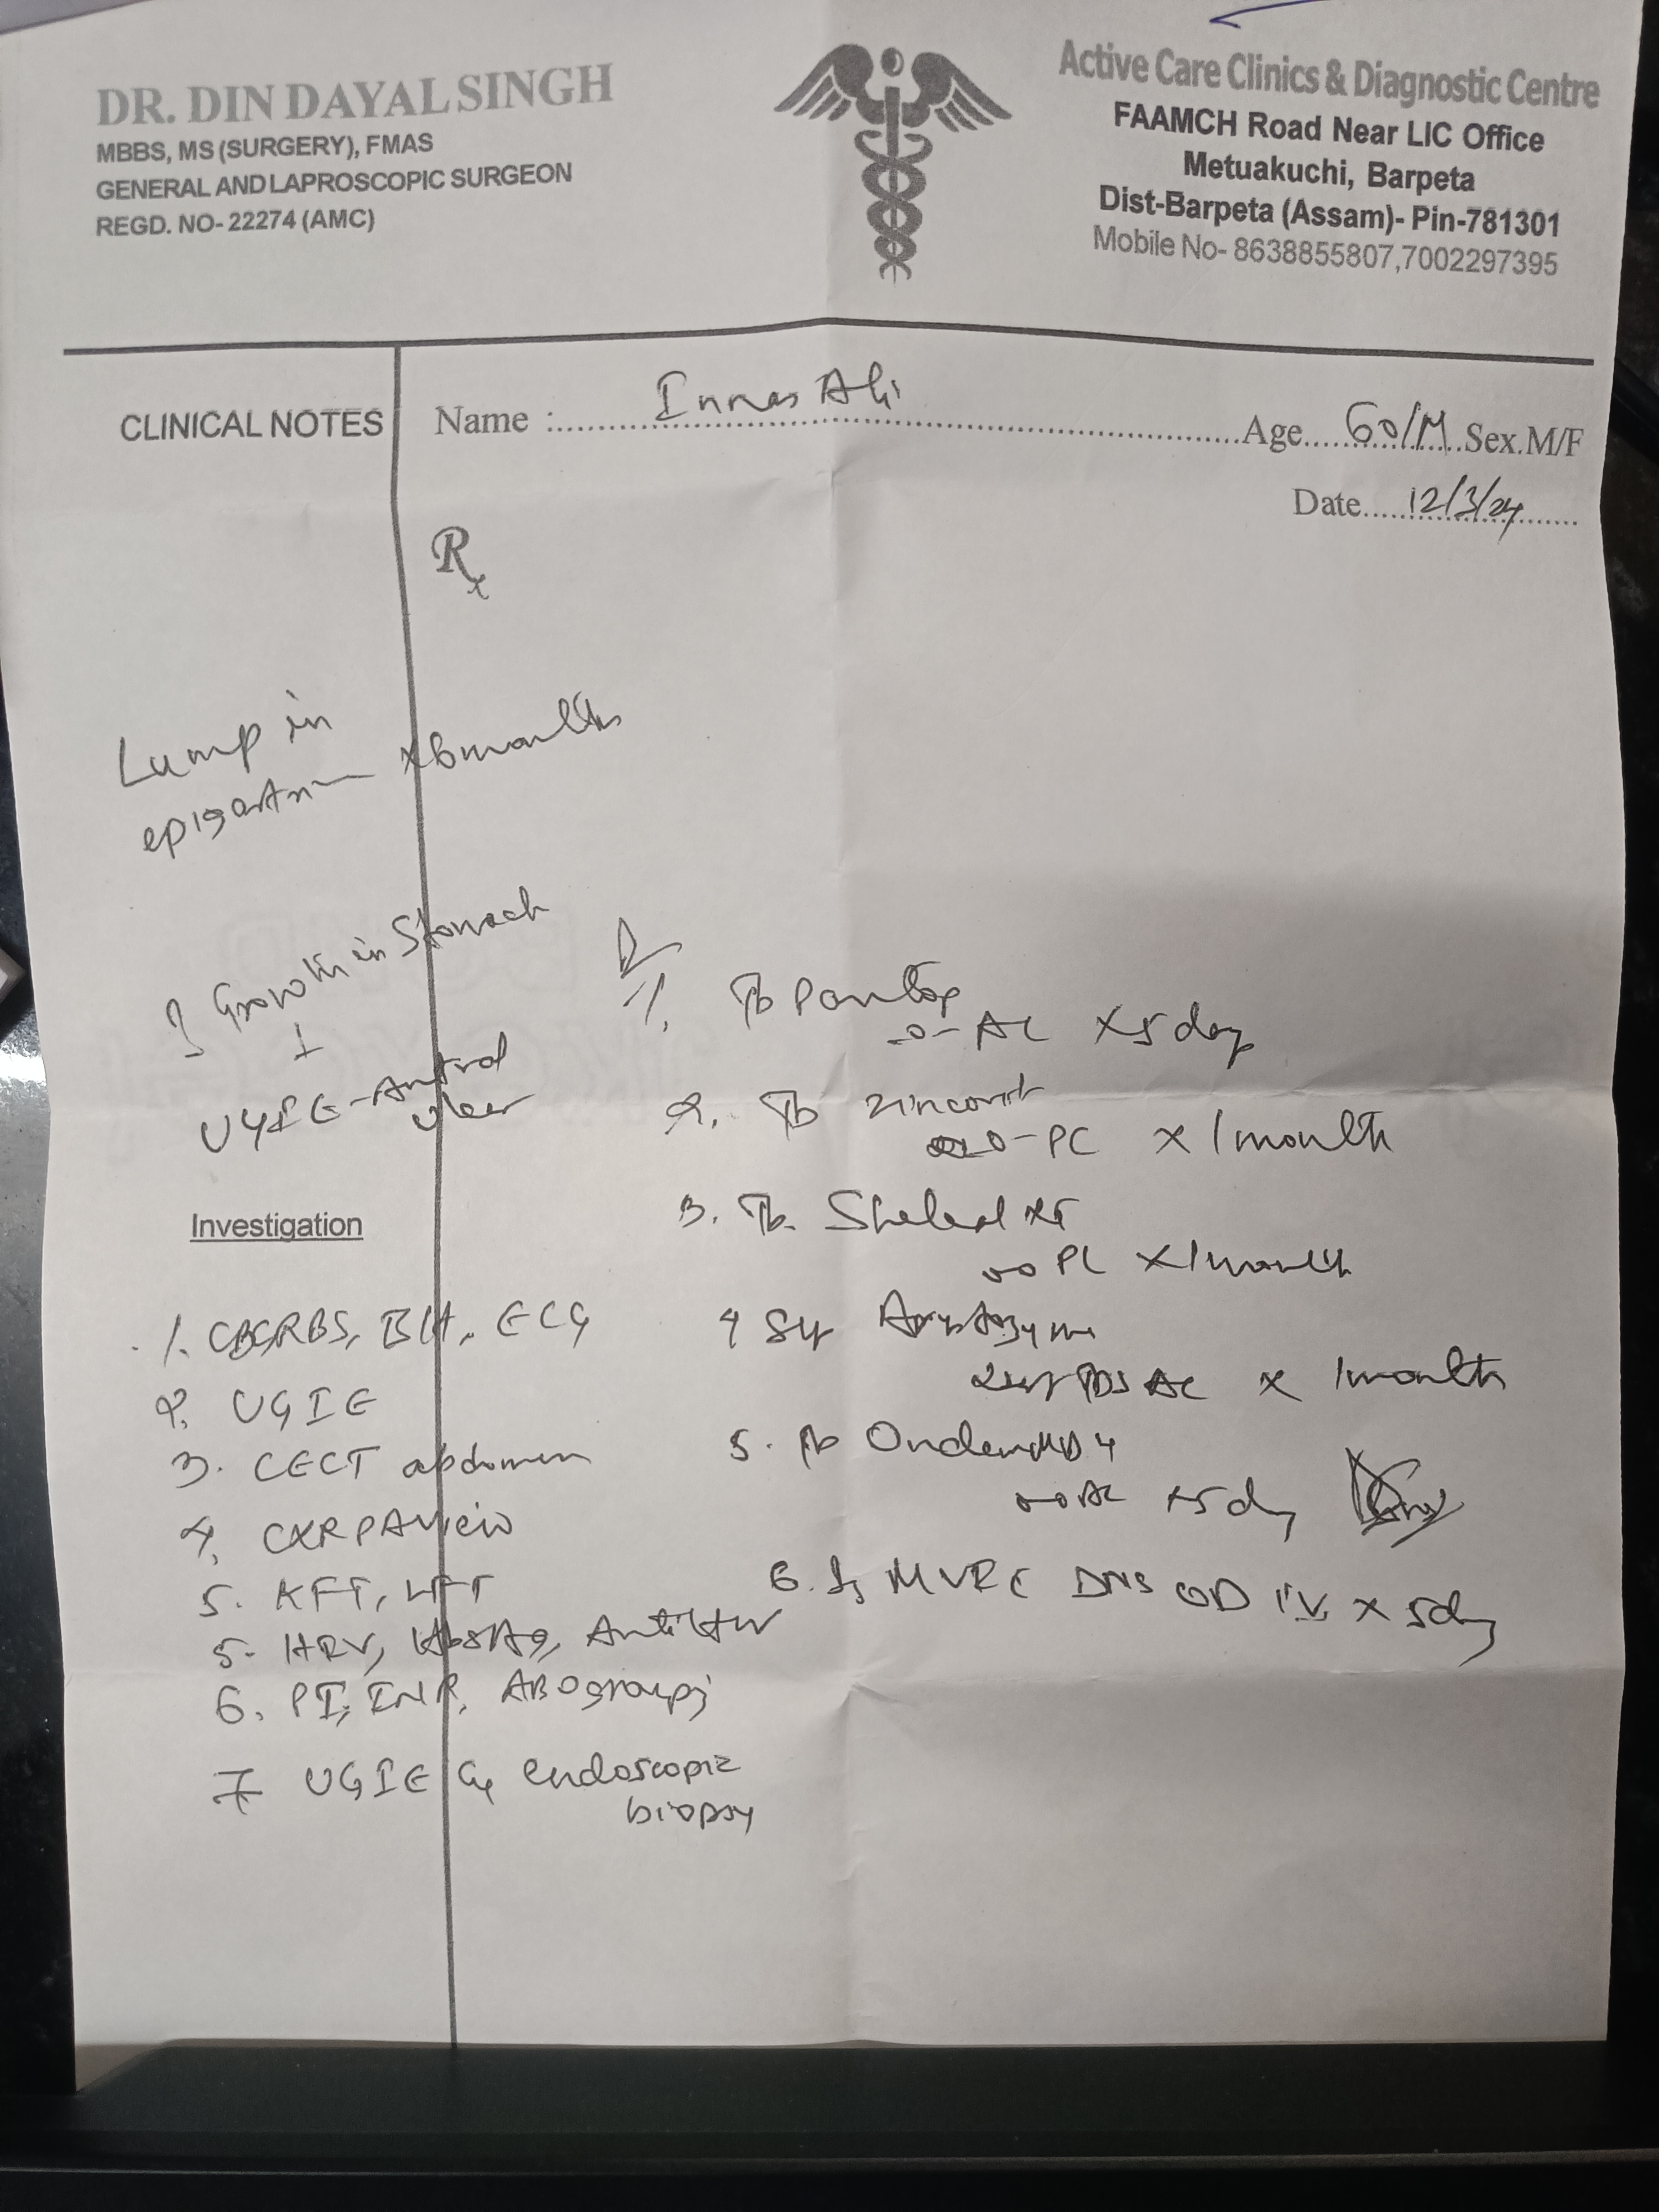 DR. DIN DAYAL SINGH
MBBS, MS (SURGERY), FMAS
GENERAL AND LAPROSCOPIC SURGEON
REGD. NO- 22274 (AMC)
Active Care Clinics & Diagnostic Centre
FAAMCH Road Near LIC Office
Metuakuchi, Barpeta
Dist-Barpeta (Assam)- Pin-781301
Mobile No- 8638855807,7002297395
CLINICAL NOTES
Name : Innas Ali Age 60/M Sex.M/F
Date 12/3/24
Rx
Lump in
epigastrium x 6 months
? Growth in Stomach
UGIE - Antral
ulcer
1. Tb Pantop
AC x 5 day
2. Tb Zincovit
PC x 1 month
3. Tb. Shelcal XT
PC x 1 month
4 Syr Aristozyme
AC x 1 month
5. Tb Ondem MD 4
AC x 5 day
6. MVRC DNS OD IV x 5 day
Investigation
1. RBS, ECG
2. UGIE
3. CECT abdomen
4. CXR PA view
5. KFT, LFT
5. HBsAg, Anti
6. PT, INR, ABO grouping
7 UGIE endoscopic
biopsy